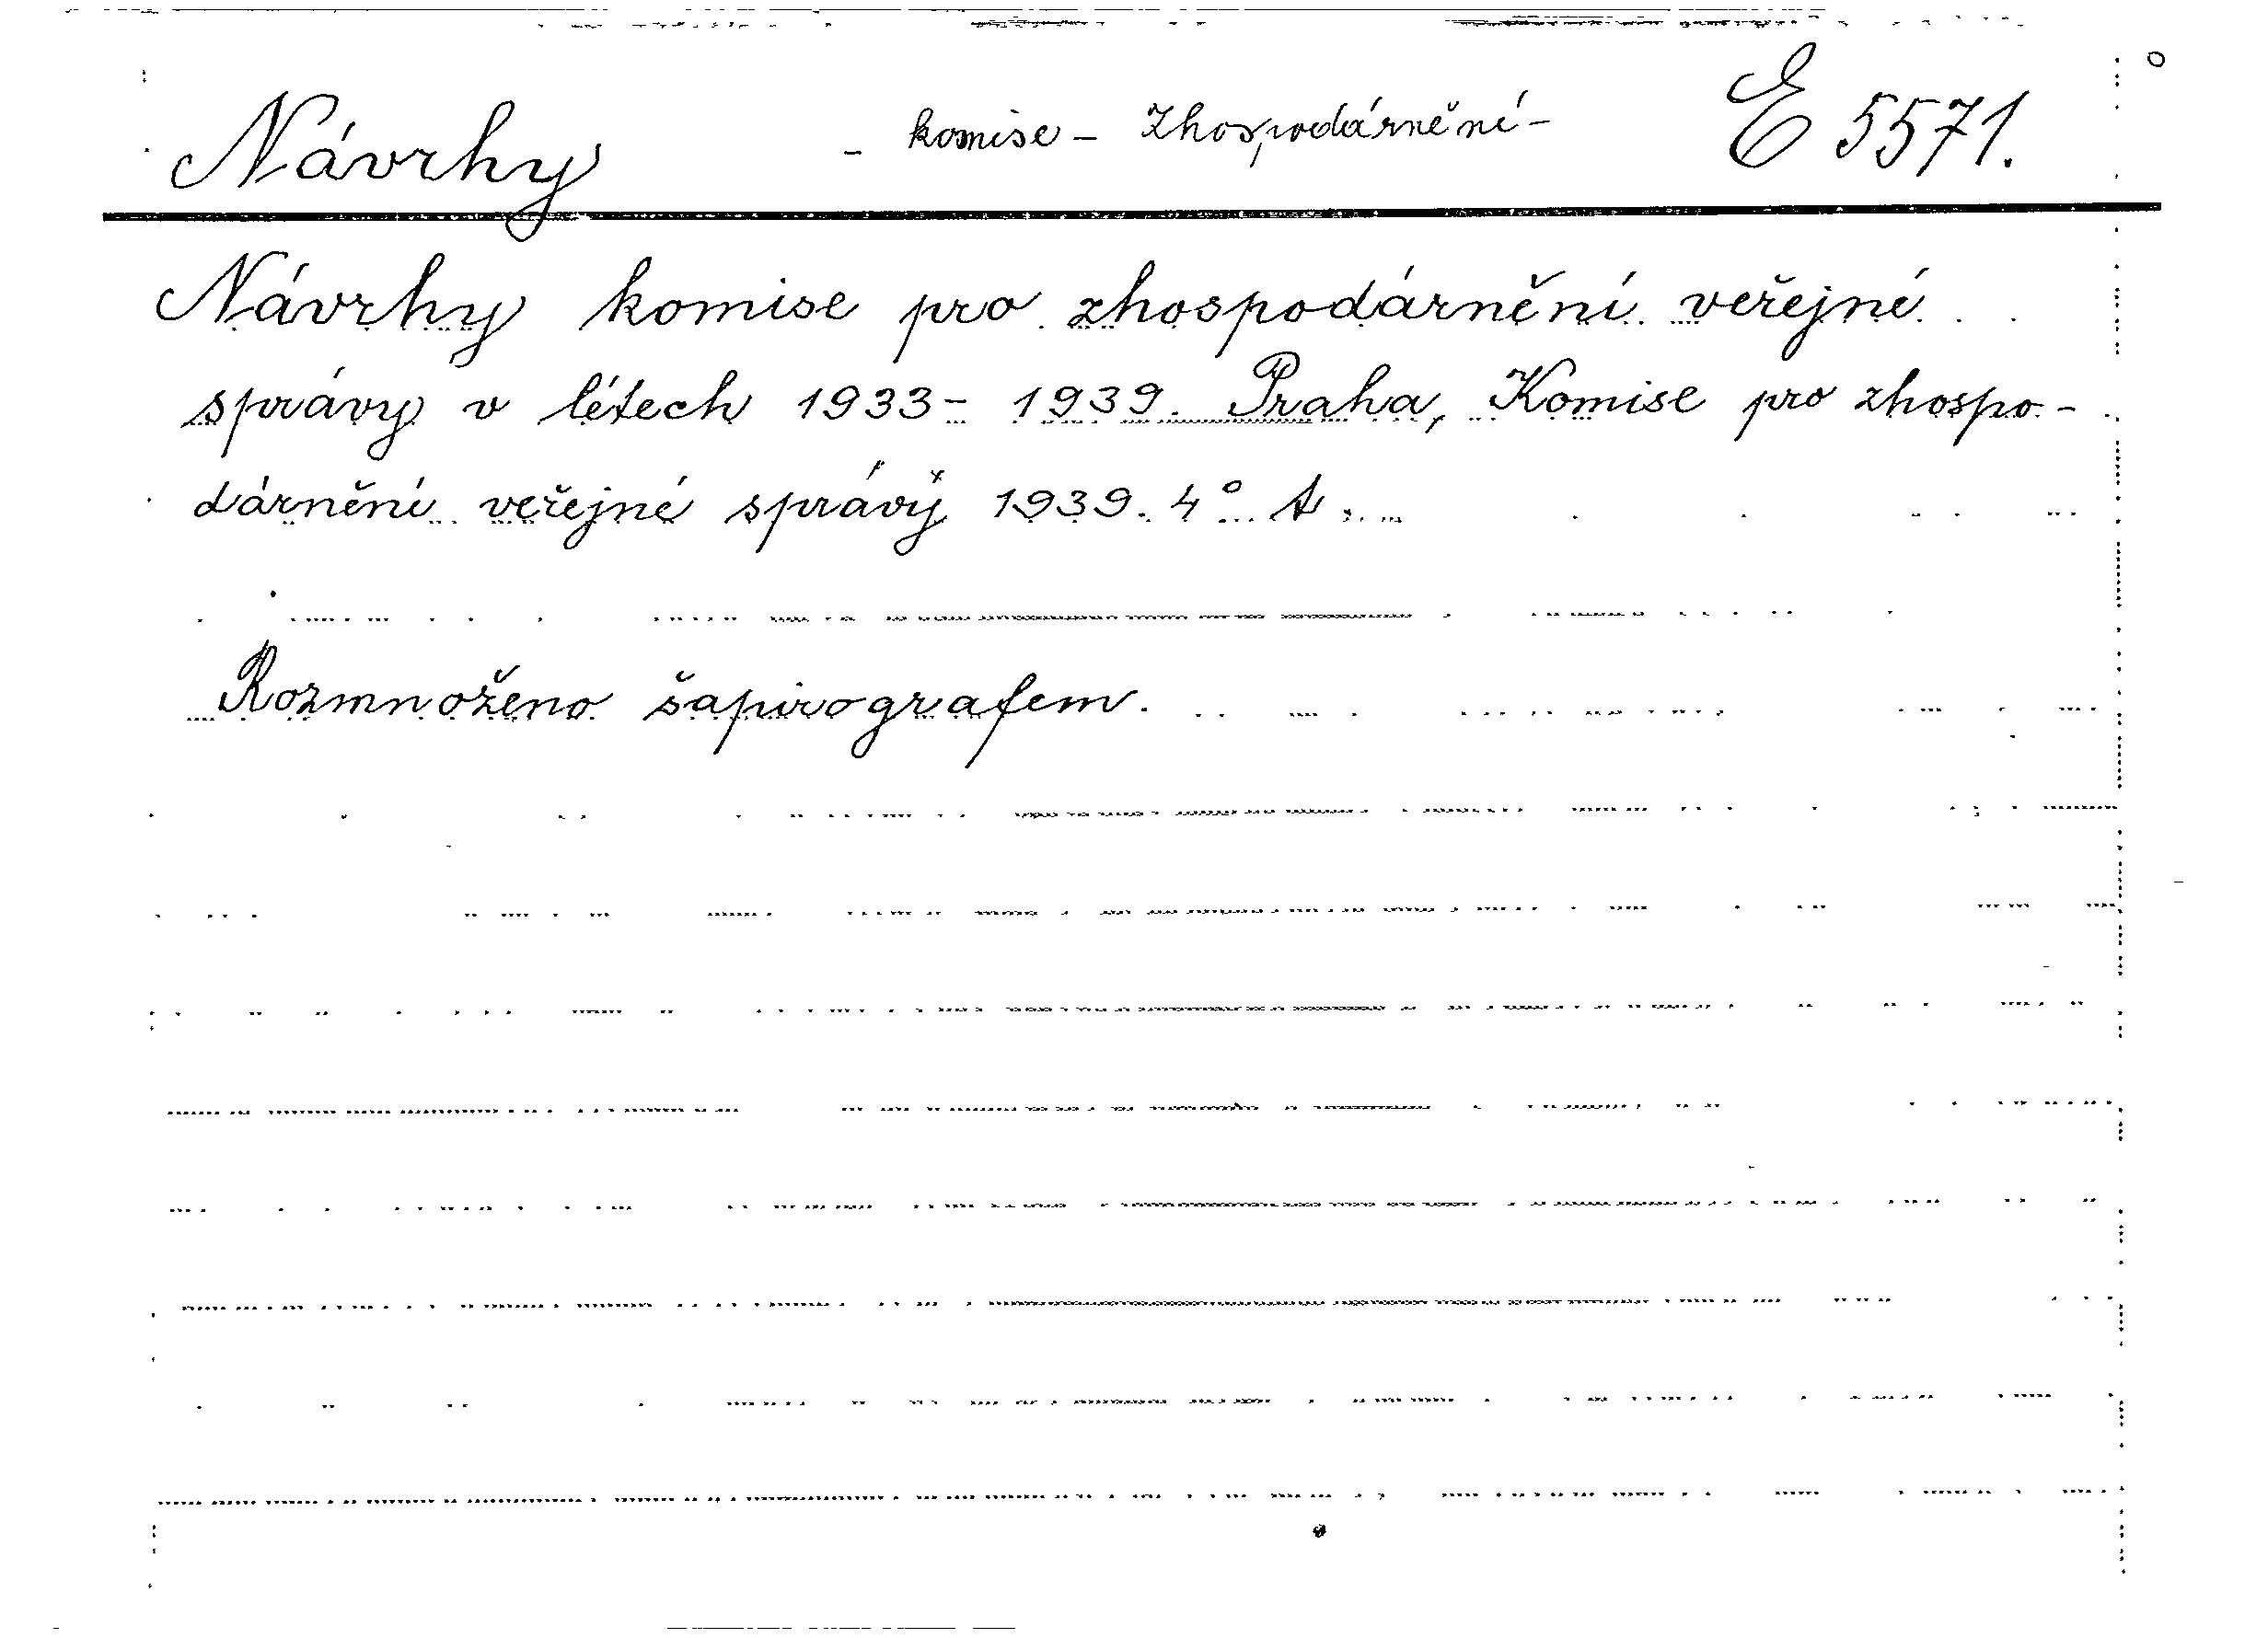 Návrhy - komise - Zhospodárnění - E 5571.
Návrhy komise pro zhospodárnění veřejné
správy v létech 1933 - 1939. Praha, Komise pro zhospo-
dárnění veřejné správy 1939. 4°
Rozmnoženo šapirografem.